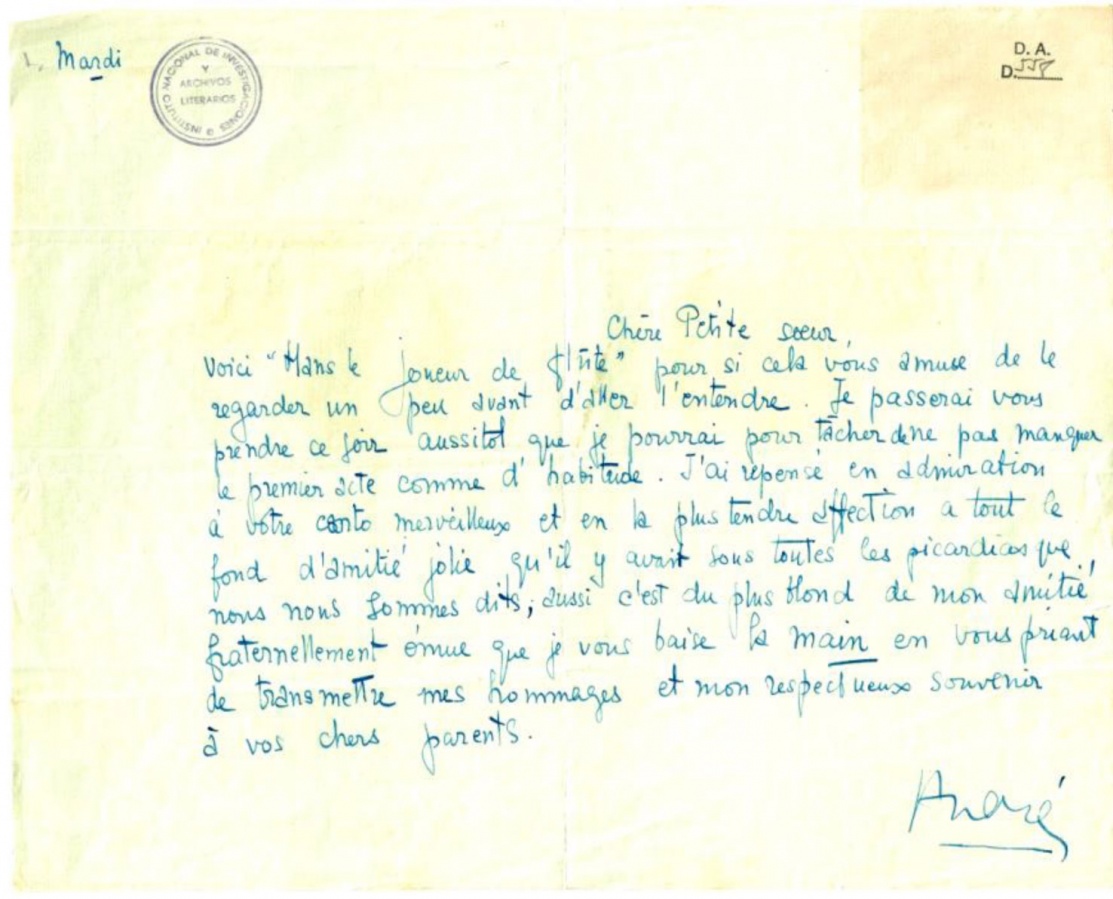 Mardi
INSTITUTO NACIONAL DE INVESTIGACIONES
Y
ARCHIVOS
LITERARIOS
D. A.
D.
Chère Petite sœur,
Voici "Hans le joueur de flûte" pour si cela vous amuse de le
regarder un peu avant d'aller l'entendre. Je passerai vous
prendre ce soir aussitot que je pourrai pour tâcher de ne pas manquer
le premier acte comme d'habitude. J'ai repensé en admiration
à votre merveilleux et en la plus tendre affection a tout le
fond d'amitié jolie qu'il y avait sous toutes les que
nous nous sommes dits; aussi c'est du plus blond de mon amitié,
fraternellement émue que je vous baise la main en vous priant
de transmettre mes hommages et mon respectueux souvenir
à vos chers parents.
André